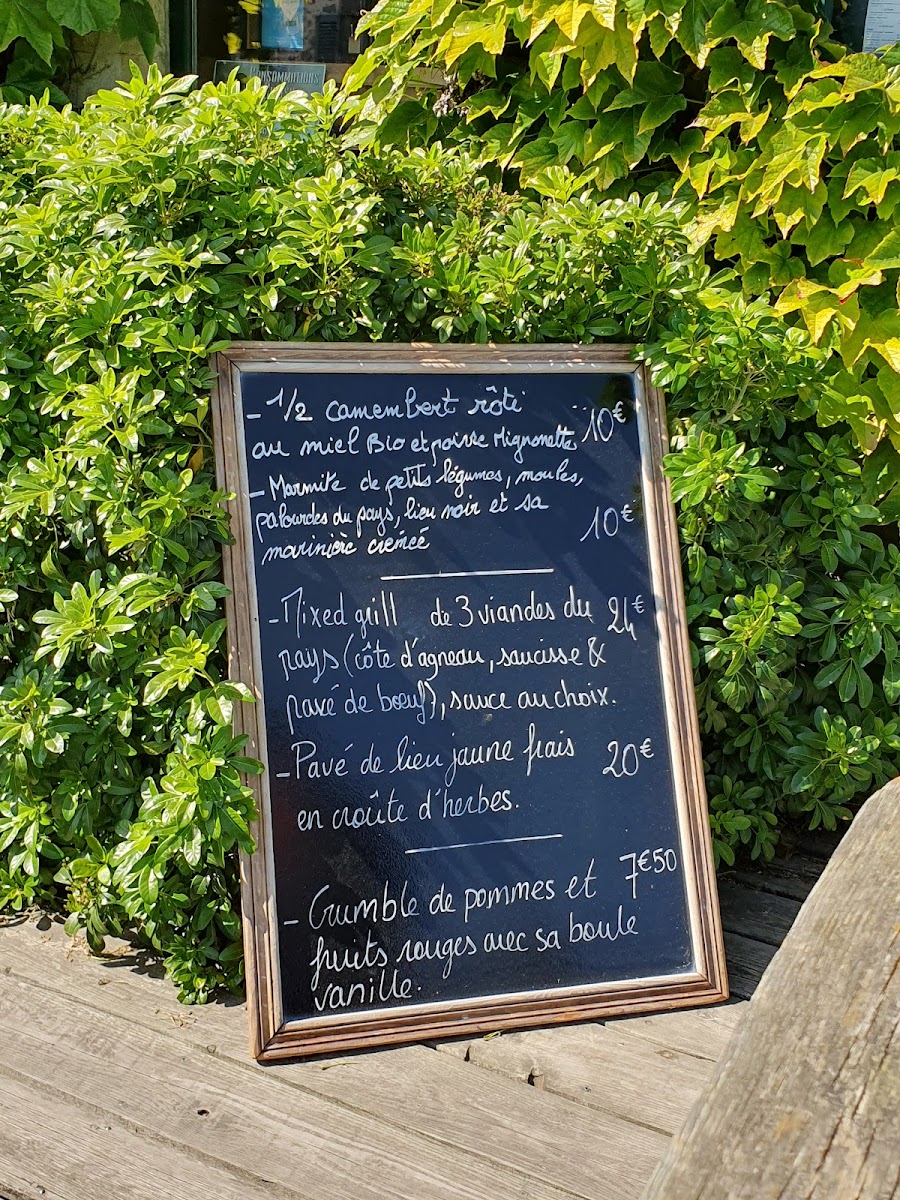 CONSOMMATIONS
- 1/2 camembert rôti
au miel Bio et poivre Mignonette 10€
- Marmite de petits légumes, moules,
palourdes du pays, lieu noir et sa
marinière crémée 10€
- Mixed grill de 3 viandes du 24€
pays (côte d'agneau, saucisse &
pavé de boeuf), sauce au choix.
- Pavé de lieu jaune frais 20€
en croûte d'herbes.
- Crumble de pommes et 7€50
fruits rouges avec sa boule
vanille.